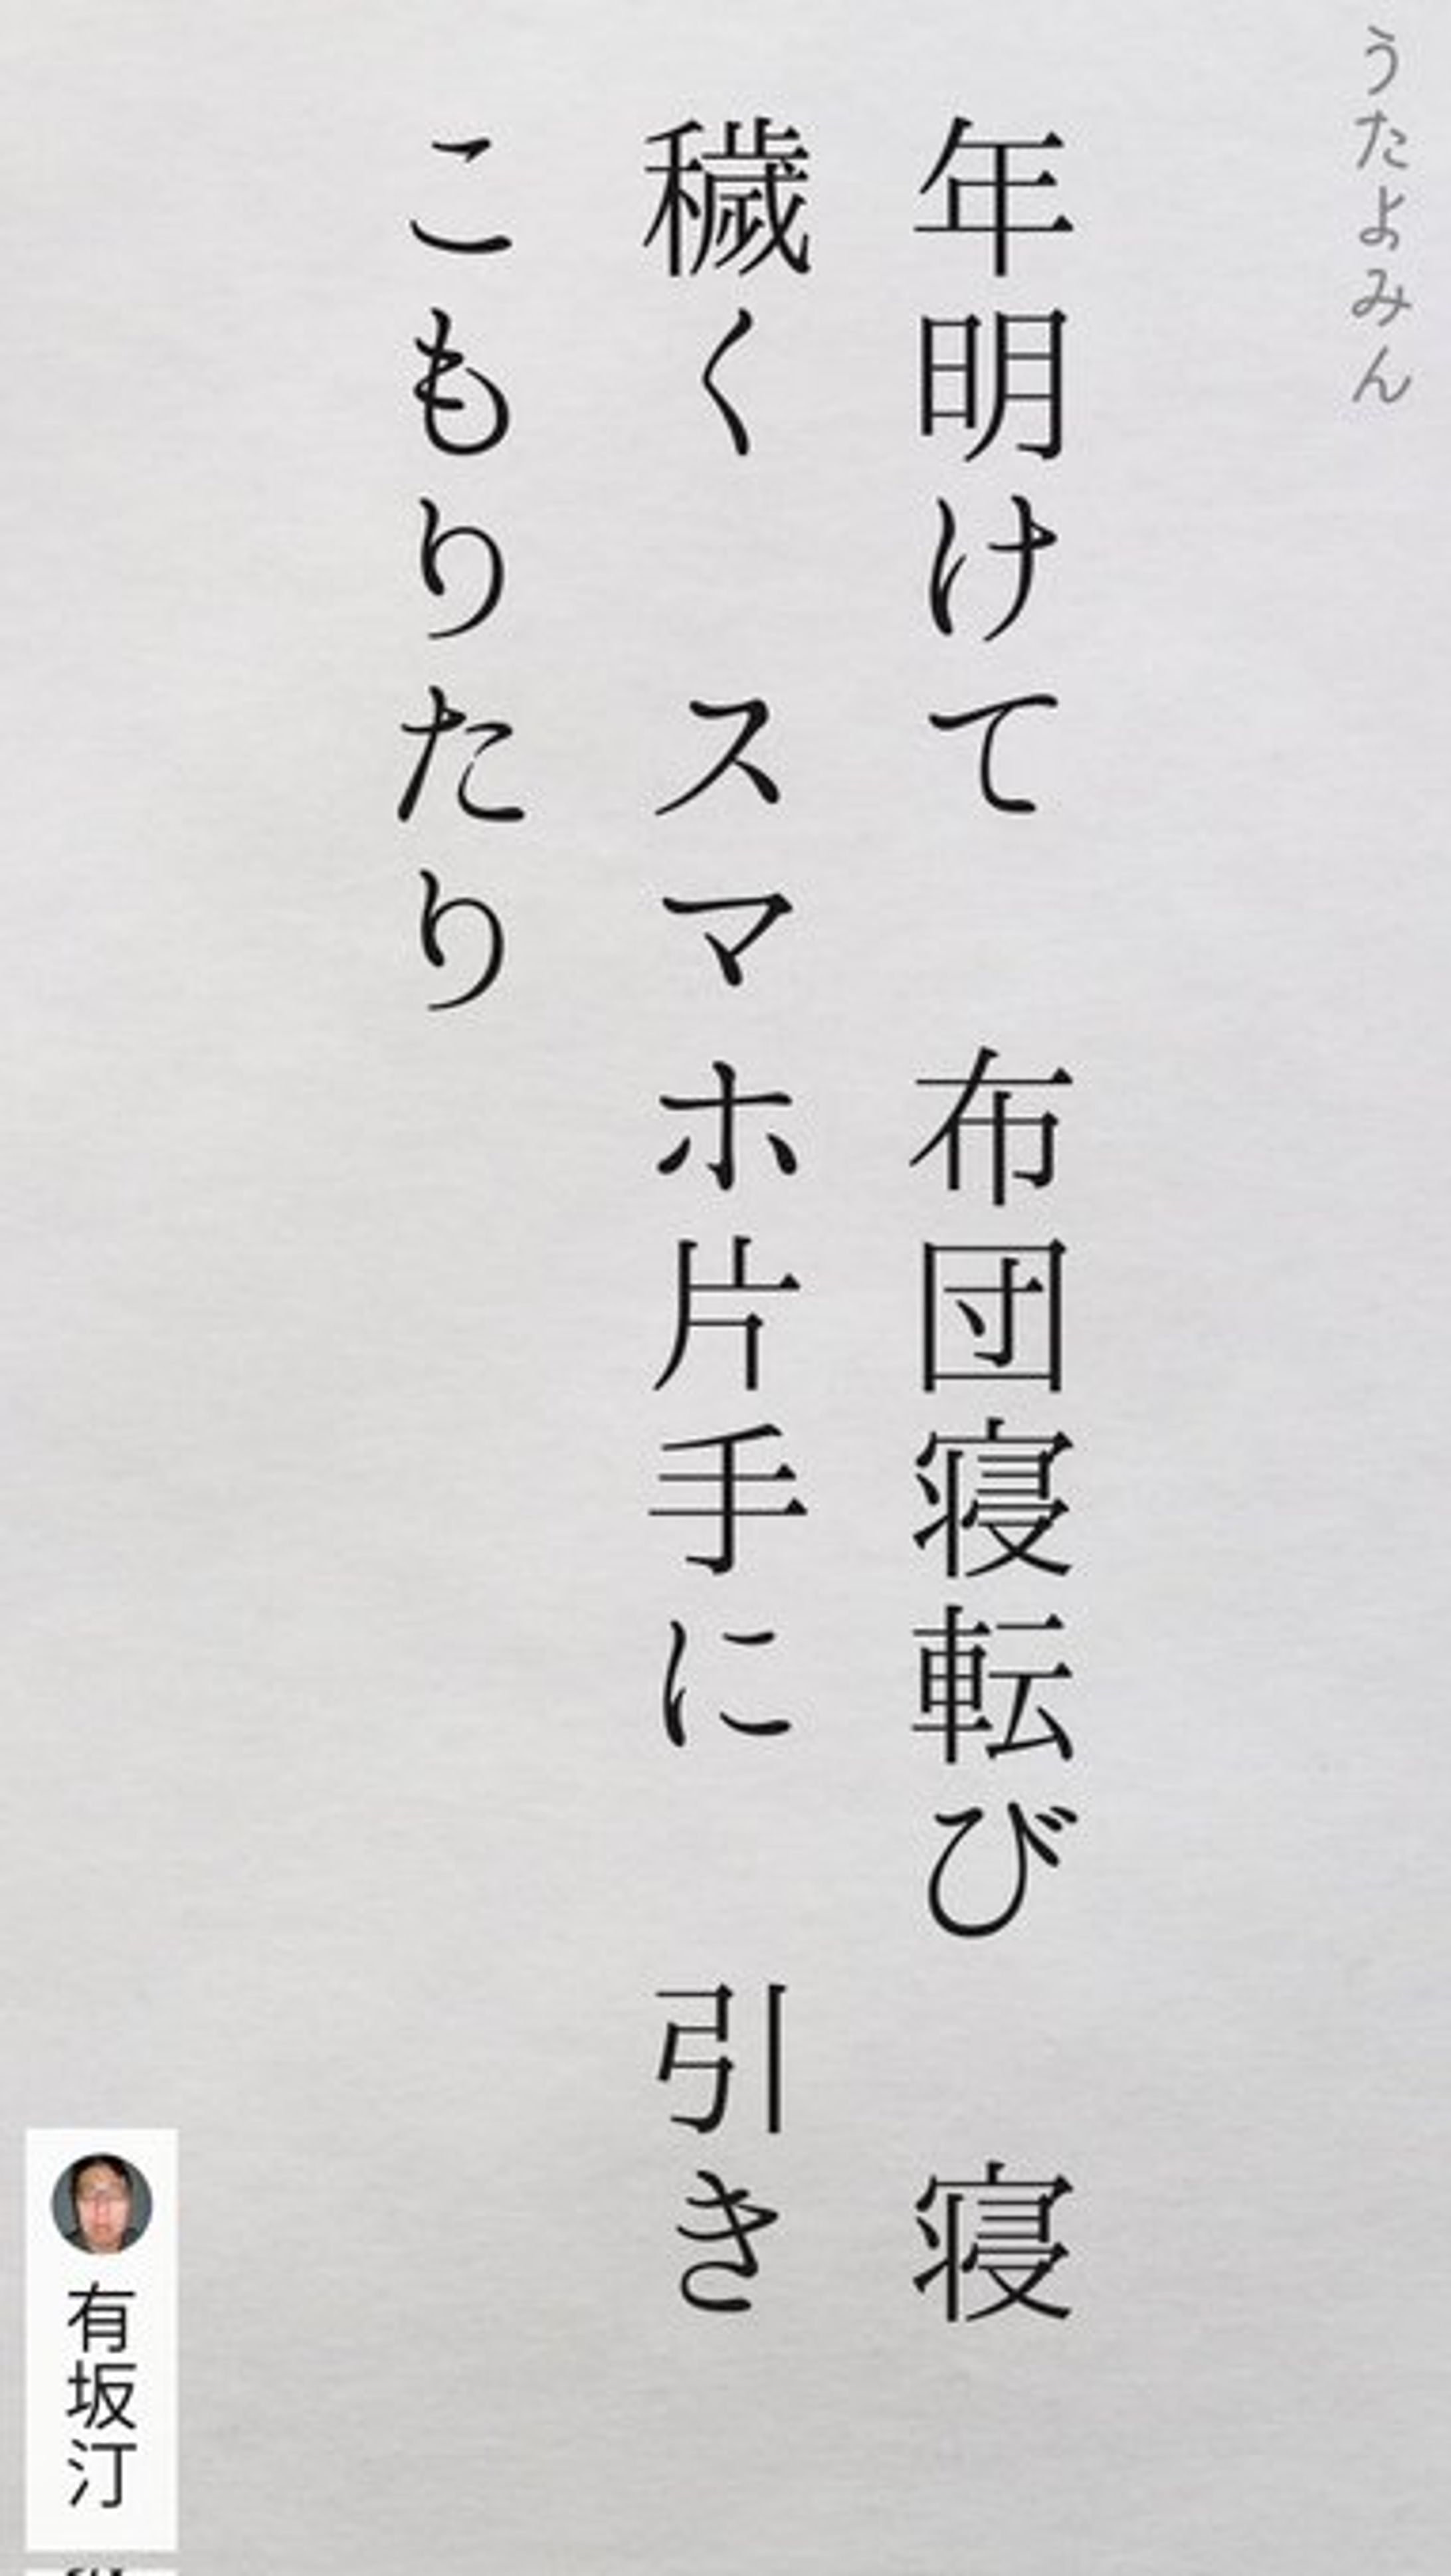 うたよみん
年明けて　布団寝転び　寝
穢く　スマホ片手に　引き
こもりたり
有坂汀